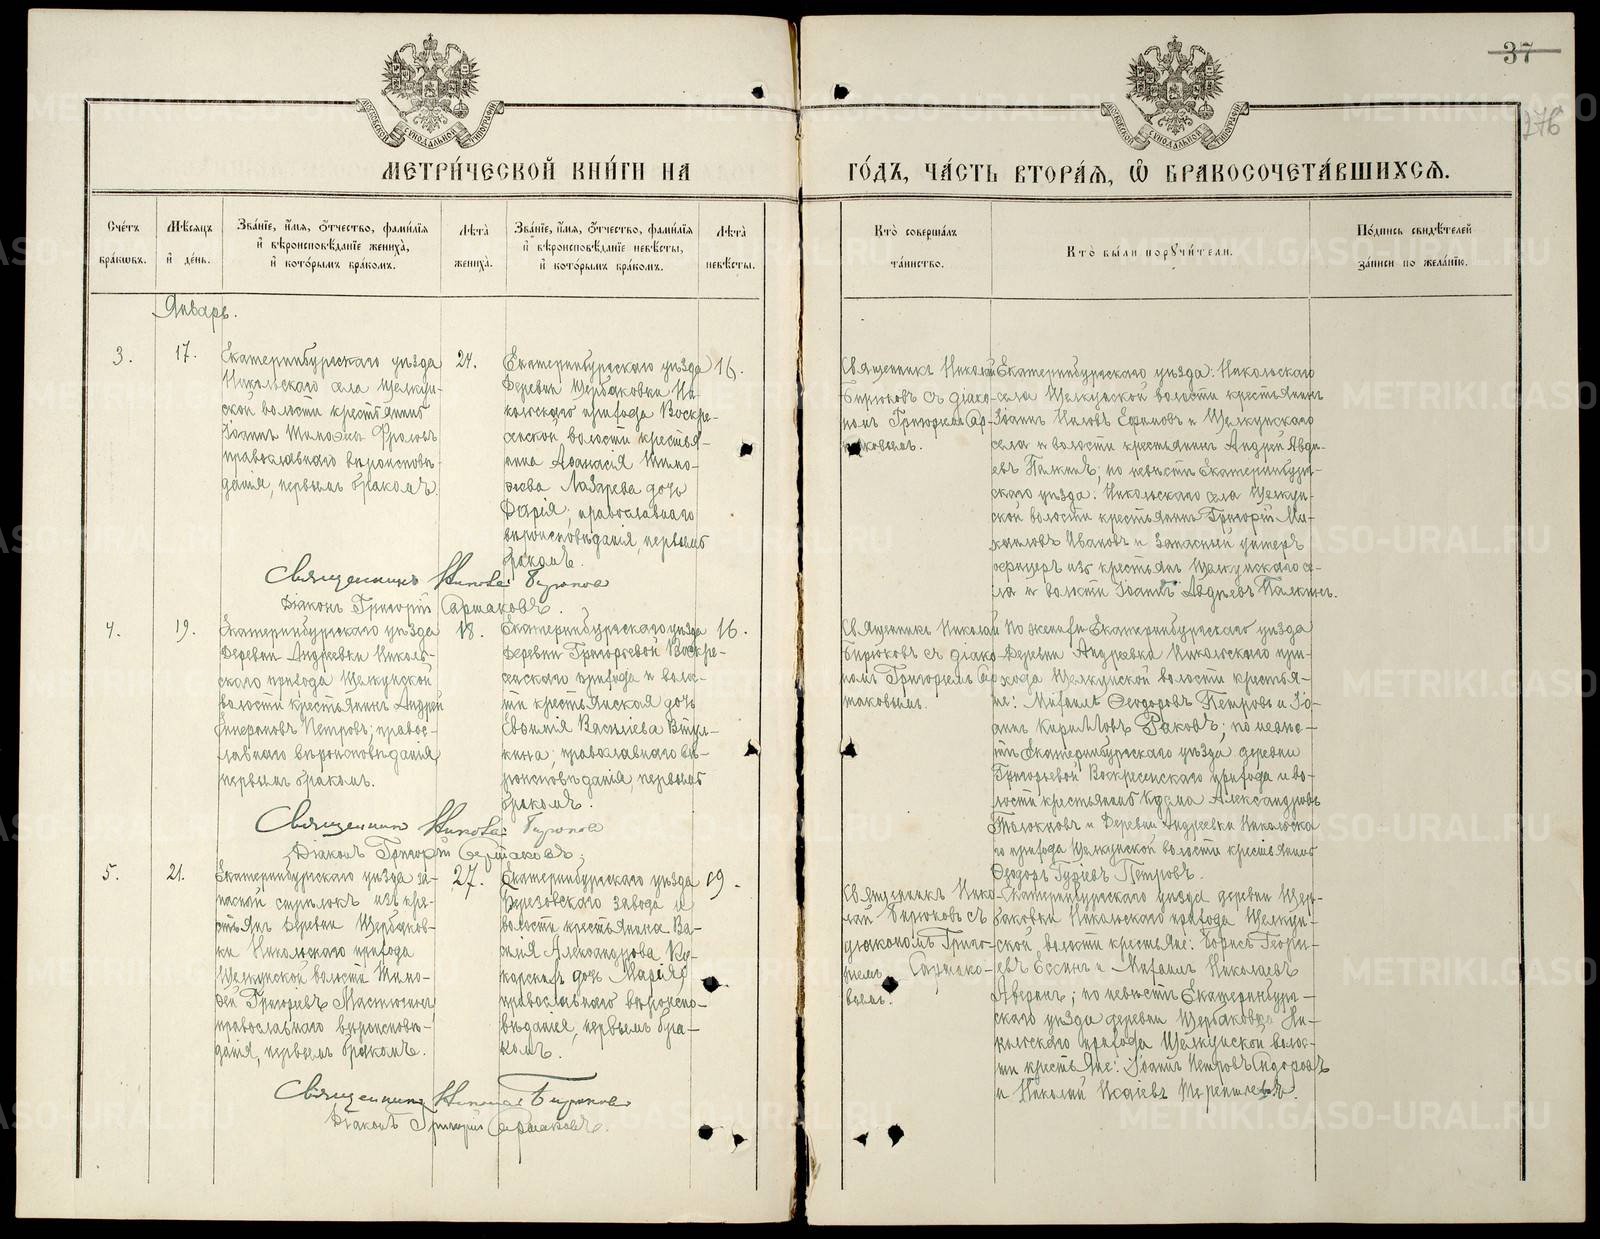 37
276
МЕТРИ́ЧЕСКОЙ КНИ́ГИ НА
ГО́ДЪ, ЧА́СТЬ ВТОРА́Я, Ѡ҆ БРАКОСОЧЕТА́ВШИХСЯ.
Сче́тъ бра́кѡвъ.
Мѣ́сяцъ и҆ де́нь.
Зва́нїе, и҆́мя, ѻ҆́тчество, фами́лїя
и҆ вѣроисповѣ́данїе жениха̀,
и҆ кото́рымъ бра́комъ.
Лѣ́та жениха̀.
Зва́нїе, и҆́мя, ѻ҆́тчество, фами́лїя
и҆ вѣроисповѣ́данїе невѣ́сты,
и҆ кото́рымъ бра́комъ.
Лѣ́та невѣ́сты.
Кто̀ соверша́лъ
та́инство.
Кто̀ бы́ли порꙋчи́тели.
По́дпись свидѣ́телей
за́писи по жела́нїю.
Январь.
3.
17.
Екатеринбургскаго уѣзда
Никольскаго села Щелкун-
ской волости крестьянинъ
Іоаннъ Фроловъ
православнаго вѣроисповѣ-
данія, первымъ бракомъ.
24.
Екатеринбургскаго уѣзда
деревни Щербаковки Ни-
кольскаго прихода Воскре-
сенской волости крестья-
нина Аѳанасія Тимо-
ѳеева Лазарева дочь
Дарія; православнаго
вѣроисповѣданія, первымъ
бракомъ.
16.
Священникъ Николай
Бирюковъ съ діако-
номъ Григоріемъ Сар-
маковымъ.
Екатеринбургскаго уѣзда: Никольскаго
села Щелкунской волости крестьянинъ
Іоаннъ Ниловъ Ефимовъ и Щелкунскаго
села и волости крестьянинъ Андрей Авди-
евъ Палкинъ; по невѣстѣ Екатеринбург-
скаго уѣзда: Никольскаго села Щелкун-
ской волости крестьянинъ Григорій Ми-
хаиловъ Ивановъ и запасный унтеръ
офицеръ изъ крестьянъ Щелкунскаго се-
ла и волости Іоаннъ Авдіевъ Палкинъ.
Священникъ Николай Бирюковъ
Діаконъ Григорій Сармаковъ.
4.
19.
Екатеринбургскаго уѣзда
деревни Андреевки Николь-
скаго прихода Щелкунской
волости крестьянинъ Андрей
Петровъ; правос-
лавнаго вѣроисповѣданія
первымъ бракомъ.
18.
Екатеринбургскаго уѣзда
деревни Григорьевой Воскре-
сенскаго прихода и воло-
сти крестьянская дочь
Евфимія Васильева Втул-
кина; православнаго вѣ-
роисповѣданія, первымъ
бракомъ.
16.
Священникъ Николай
Бирюковъ съ діако-
номъ Григоріемъ Сар-
маковымъ.
По женихѣ Екатеринбургскаго уѣзда
деревни Андреевки Никольскаго при-
хода Щелкунской волости крестья-
не: Михаилъ Ѳеодоровъ Петровъ и Іо-
аннъ Кирилловъ Раковъ; по невѣс-
тѣ Екатеринбургскаго уѣзда деревни
Григорьевой Воскресенскаго прихода и во-
лости крестьянинъ Косма Александровъ
Толокновъ и деревни Андреевки Никольска-
го прихода Щелкунской волости крестьянинъ
Ѳеодоръ Гурьевъ Петровъ.
Священникъ Николай Бирюковъ
Діаконъ Григорій Сармаковъ.
5.
21.
Екатеринбургскаго уѣзда за-
пасной стрѣлокъ изъ кре-
стьянъ деревни Щербаков-
ки Никольскаго прихода
Щелкунской волости Тимо-
ѳей Григорьевъ
православнаго вѣроисповѣ-
данія, первымъ бракомъ.
27.
Екатеринбургскаго уѣзда
Березовскаго завода и
волости крестьянина Ва-
силія Александрова
дочь Марія
православнаго вѣроиспо-
вѣданія, первымъ бра-
комъ.
19.
Священникъ Нико-
лай Бирюковъ съ
діакономъ Григо-
ріемъ Сармако-
вымъ.
Екатеринбургскаго уѣзда деревни Щер-
баковки Никольскаго прихода Щелкун-
ской волости крестьяне: Борисъ Георги-
евъ Ессинъ и Михаилъ Николаевъ
Аверинъ; по невѣстѣ Екатеринбург-
скаго уѣзда деревни Щербаковки Ни-
кольскаго прихода Щелкунской волос-
ти крестьяне: Іоаннъ Петровъ Сидоровъ
и Николай Исаіевъ Терентьевъ.
Священникъ Николай Бирюковъ
Діаконъ Григорій Сармаковъ.
METRIKI.GASO-URAL.RU